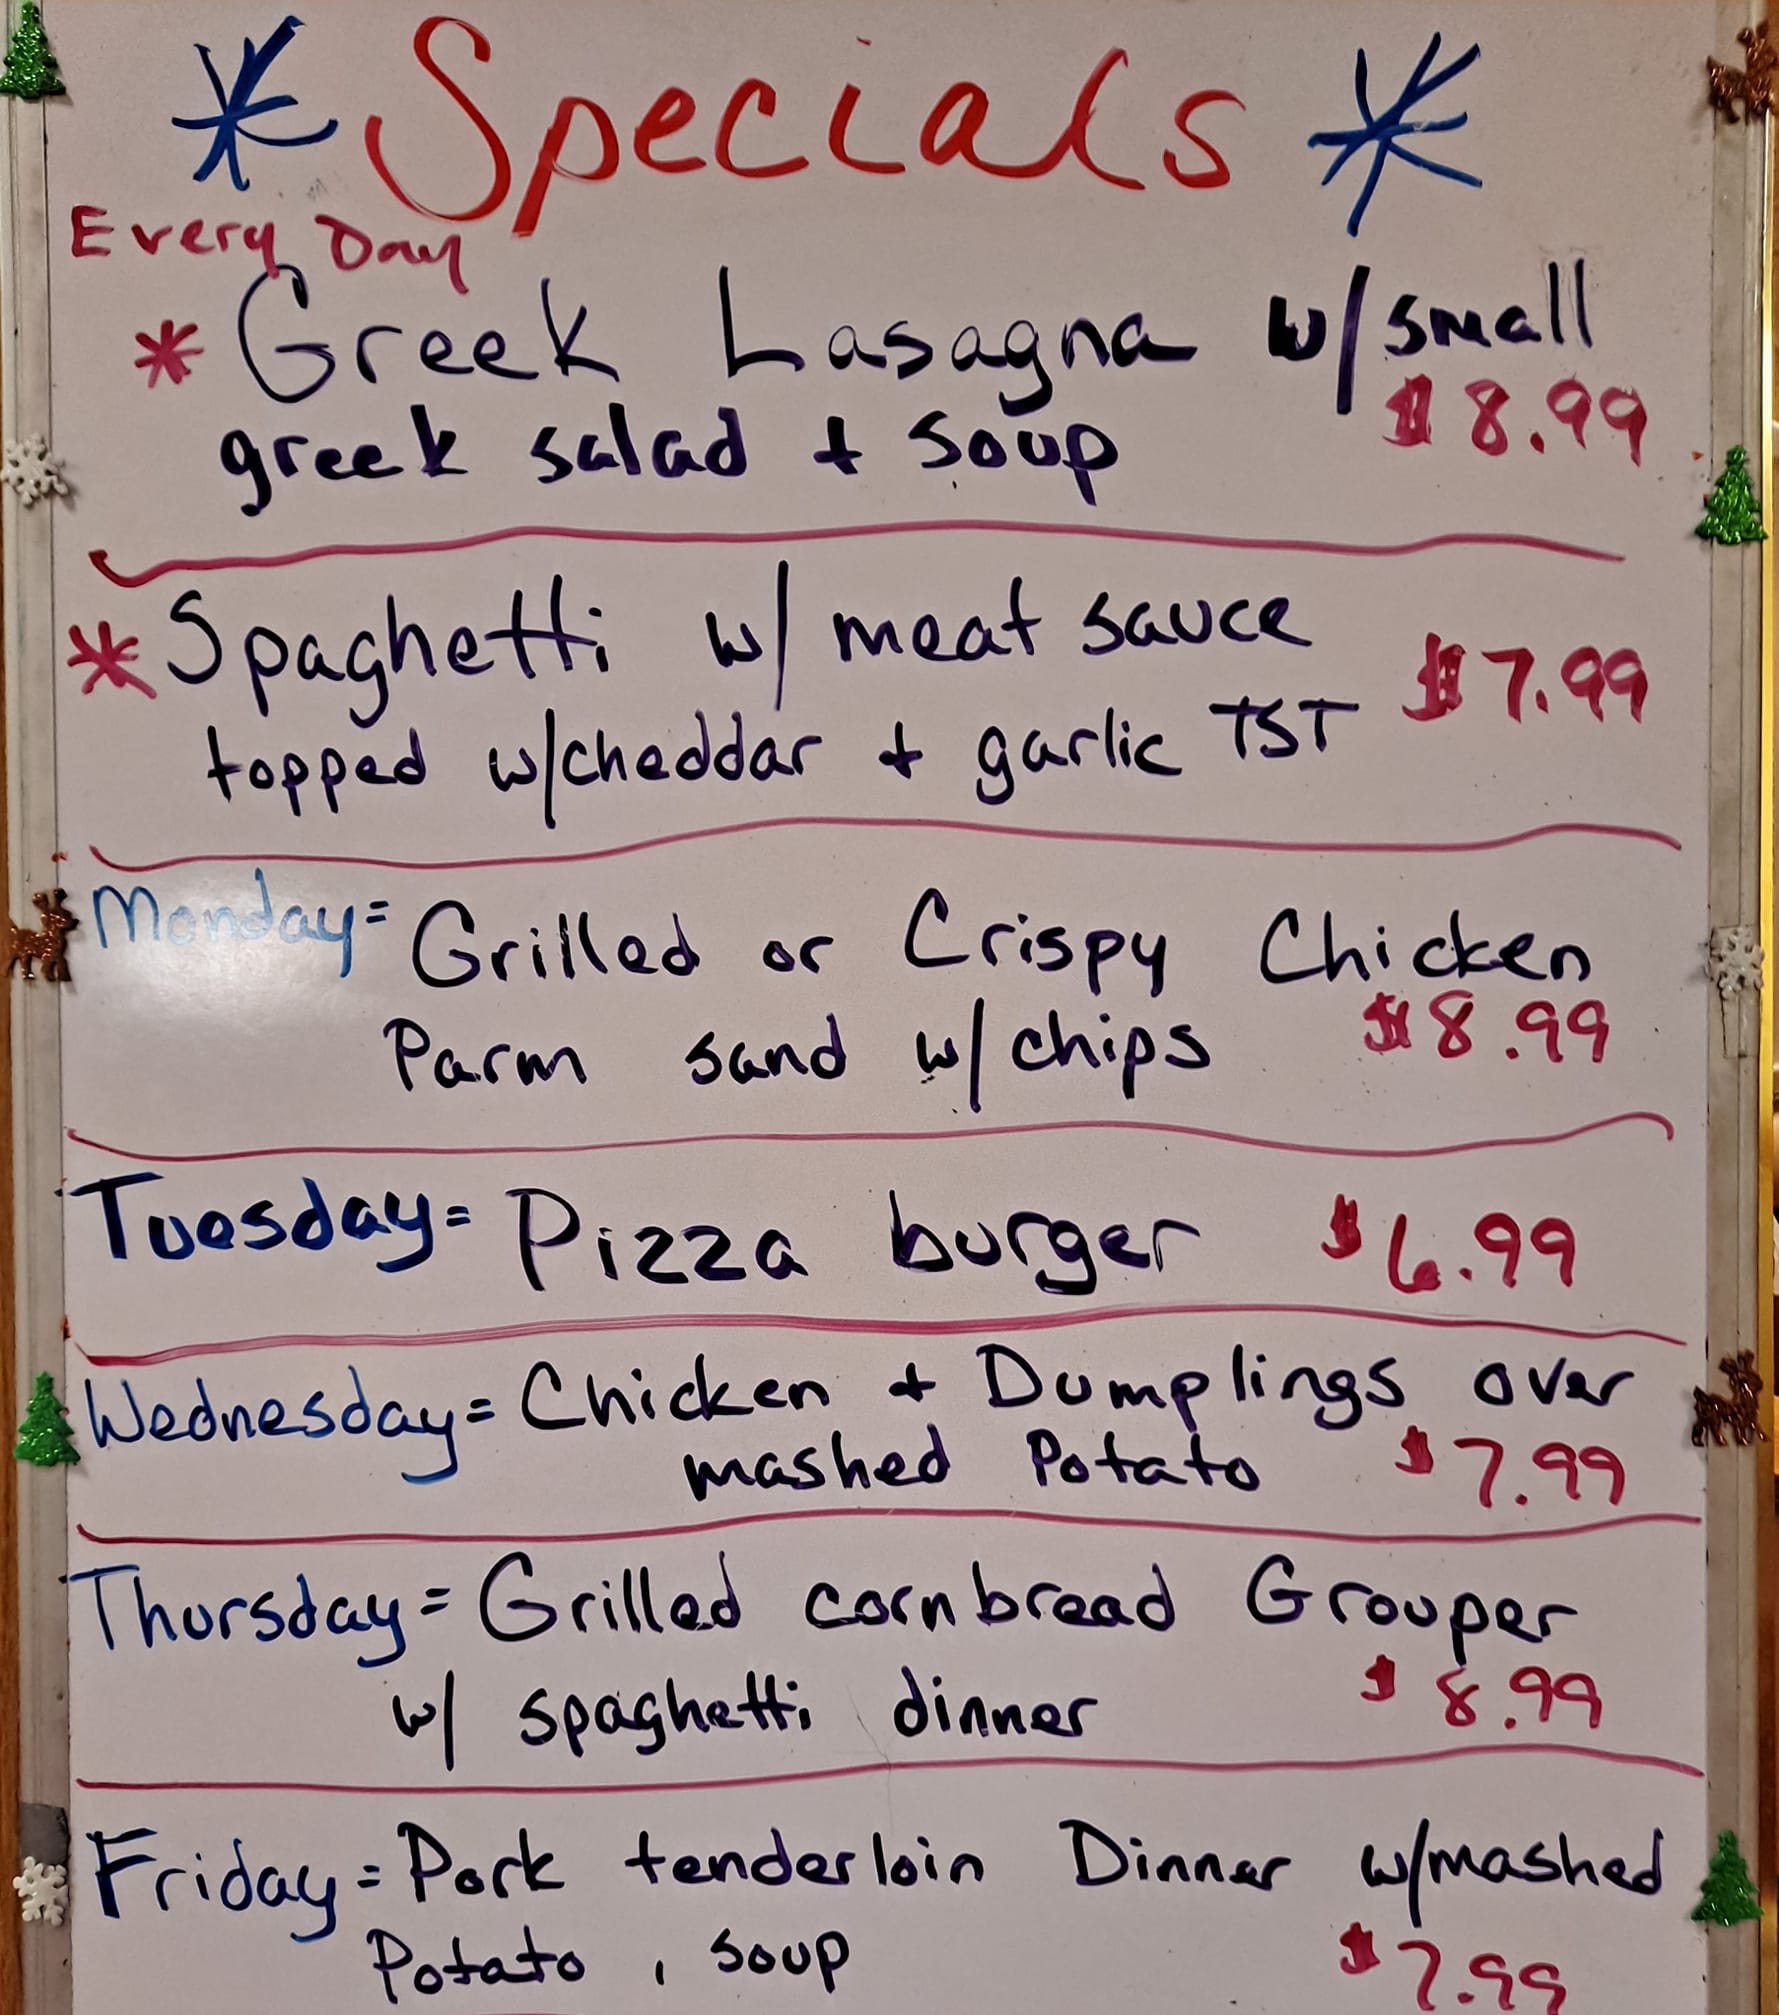 * Specials *
Every Day
* Greek Lasagna w/small
$8.99
greek salad + soup
* Spaghetti w/ meat sauce
$7.99
topped w/cheddar + garlic TST
Monday= Grilled or Crispy Chicken
Parm sand w/chips $8.99
Tuesday= Pizza burger $6.99
Wednesday= Chicken + Dumplings over
mashed Potato $7.99
Thursday= Grilled cornbread Grouper
w/ spaghetti dinner $8.99
Friday= Pork tenderloin Dinner w/mashed
Potato, soup $7.99